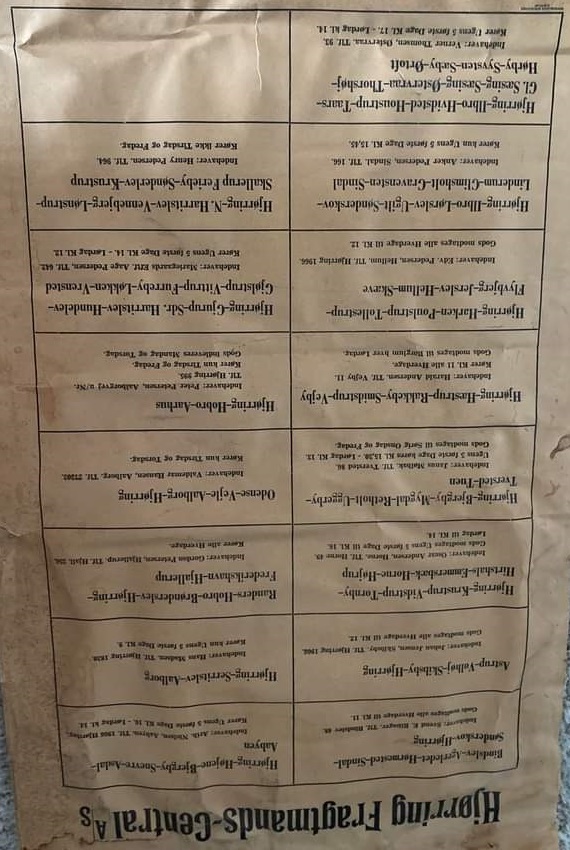 Hjørring Fragtmands-Central A/S
Bindslev-Agerledet-Hormested-Sindal-
Sønderskov-Hjørring
Gods modtages alle Hverdage til Kl. 11.
Hjørring-Højene-Bjergby-Snevre-Asdal-
Aabyen
Indehaver: Arth. Nielsen, Aabyen, Tlf. 1988 Hjørring.
Kører Ugens 5 første Dage Kl. 16. - Lørdag Kl. 14.
Astrup-Vellhøj-Skibsby-Hjørring
Indehaver: Johan Jensen, Skibsby, Tlf. Hjørring 1966.
Gods modtages alle Hverdage til Kl. 12.
Hjørring-Serritslev-Aalborg
Indehaver: Hans Madsen, Tlf. Hjørring 1020.
Kører kun Ugens 5 første Dage Kl. 9.
Hjørring-Krustrup-Vidstrup-Tornby-
Hirtshals-Emmersbæk-Horne-Højrup
Indehaver: Oscar Andersen, Horne, Tlf. Horne 49.
Gods modtages Ugens 5 første Dage til Kl. 16.
Lørdag til Kl. 14.
Randers-Hobro-Brønderslev-Hjørring-
Frederikshavn-Hjallerup
Indehaver: Gordon Petersen, Hjallerup.
Kører alle Hverdage.
Hjørring-Bjergby-Mygdal-Retholt-Uggerby-
Tversted-Tuen
Indehaver: Janus Møthak, Tlf. Tversted 86.
Ugens 5 første Dage køres Kl. 15,30 - Lørdag Kl. 13.
Gods modtages til Sørig Onsdag og Fredag.
Odense-Vejle-Aalborg-Hjørring
Indehaver: Valdemar Hansen, Aalborg, Tlf. 27202.
Kører kun Tirsdag og Torsdag.
Hjørring-Hæstrup-Rakkeby-Smidstrup-Vejby
Indehaver: Harald Andersen, Tlf. Vejby 11.
Kører Kl. 11 alle Hverdage.
Gods modtages til Børglum hver Lørdag.
Hjørring-Hobro-Aarhus
Indehaver: Peter Petersen, Aalborgvej u/Nr.
Tlf. Hjørring 995.
Kører kun Tirsdag og Fredag.
Gods indleveres Mandag og Torsdag.
Hjørring-Harken-Poulstrup-Tollestrup-
Flyvbjerg-Jerslev-Hellum-Skæve
Indehaver: Edv. Pedersen, Hellum, Tlf. Hjørring 1966.
Gods modtages alle Hverdage til Kl. 12.
Hjørring-Gjurup-Sdr. Harritslev-Hundelev-
Gjølstrup-Vittrup-Furreby-Løkken-Vrensted
Indehaver: Mariegaards Eftf. Aage Pedersen, Tlf. 642.
Kører Ugens 5 første Dage Kl. 14. - Lørdag Kl. 12.
Hjørring-Ilbro-Lørslev-Ugilt-Sønderskov-
Linderum-Climsholt-Gravensten-Sindal
Indehaver: Anker Pedersen, Sindal, Tlf. 166.
Kører kun Ugens 5 første Dage Kl. 15,45.
Hjørring-N. Harritslev-Vennebjerg-Lønstrup-
Skallerup Ferieby-Sønderlev-Krustrup
Indehaver: Henry Petersen, Tlf. 964.
Kører ikke Tirsdag og Fredag.
Hjørring-Ilbro-Hvidsted-Houstrup-Taars-
Gl. Sæsing-Sæsing-Østervraa-Thorshøj-
Hørby-Syvsten-Sæby-Ørtoft
Indehaver: Verner Thomsen, Østervraa, Tlf. 93.
Kører Ugens 5 første Dage Kl. 17. - Lørdag Kl. 14.